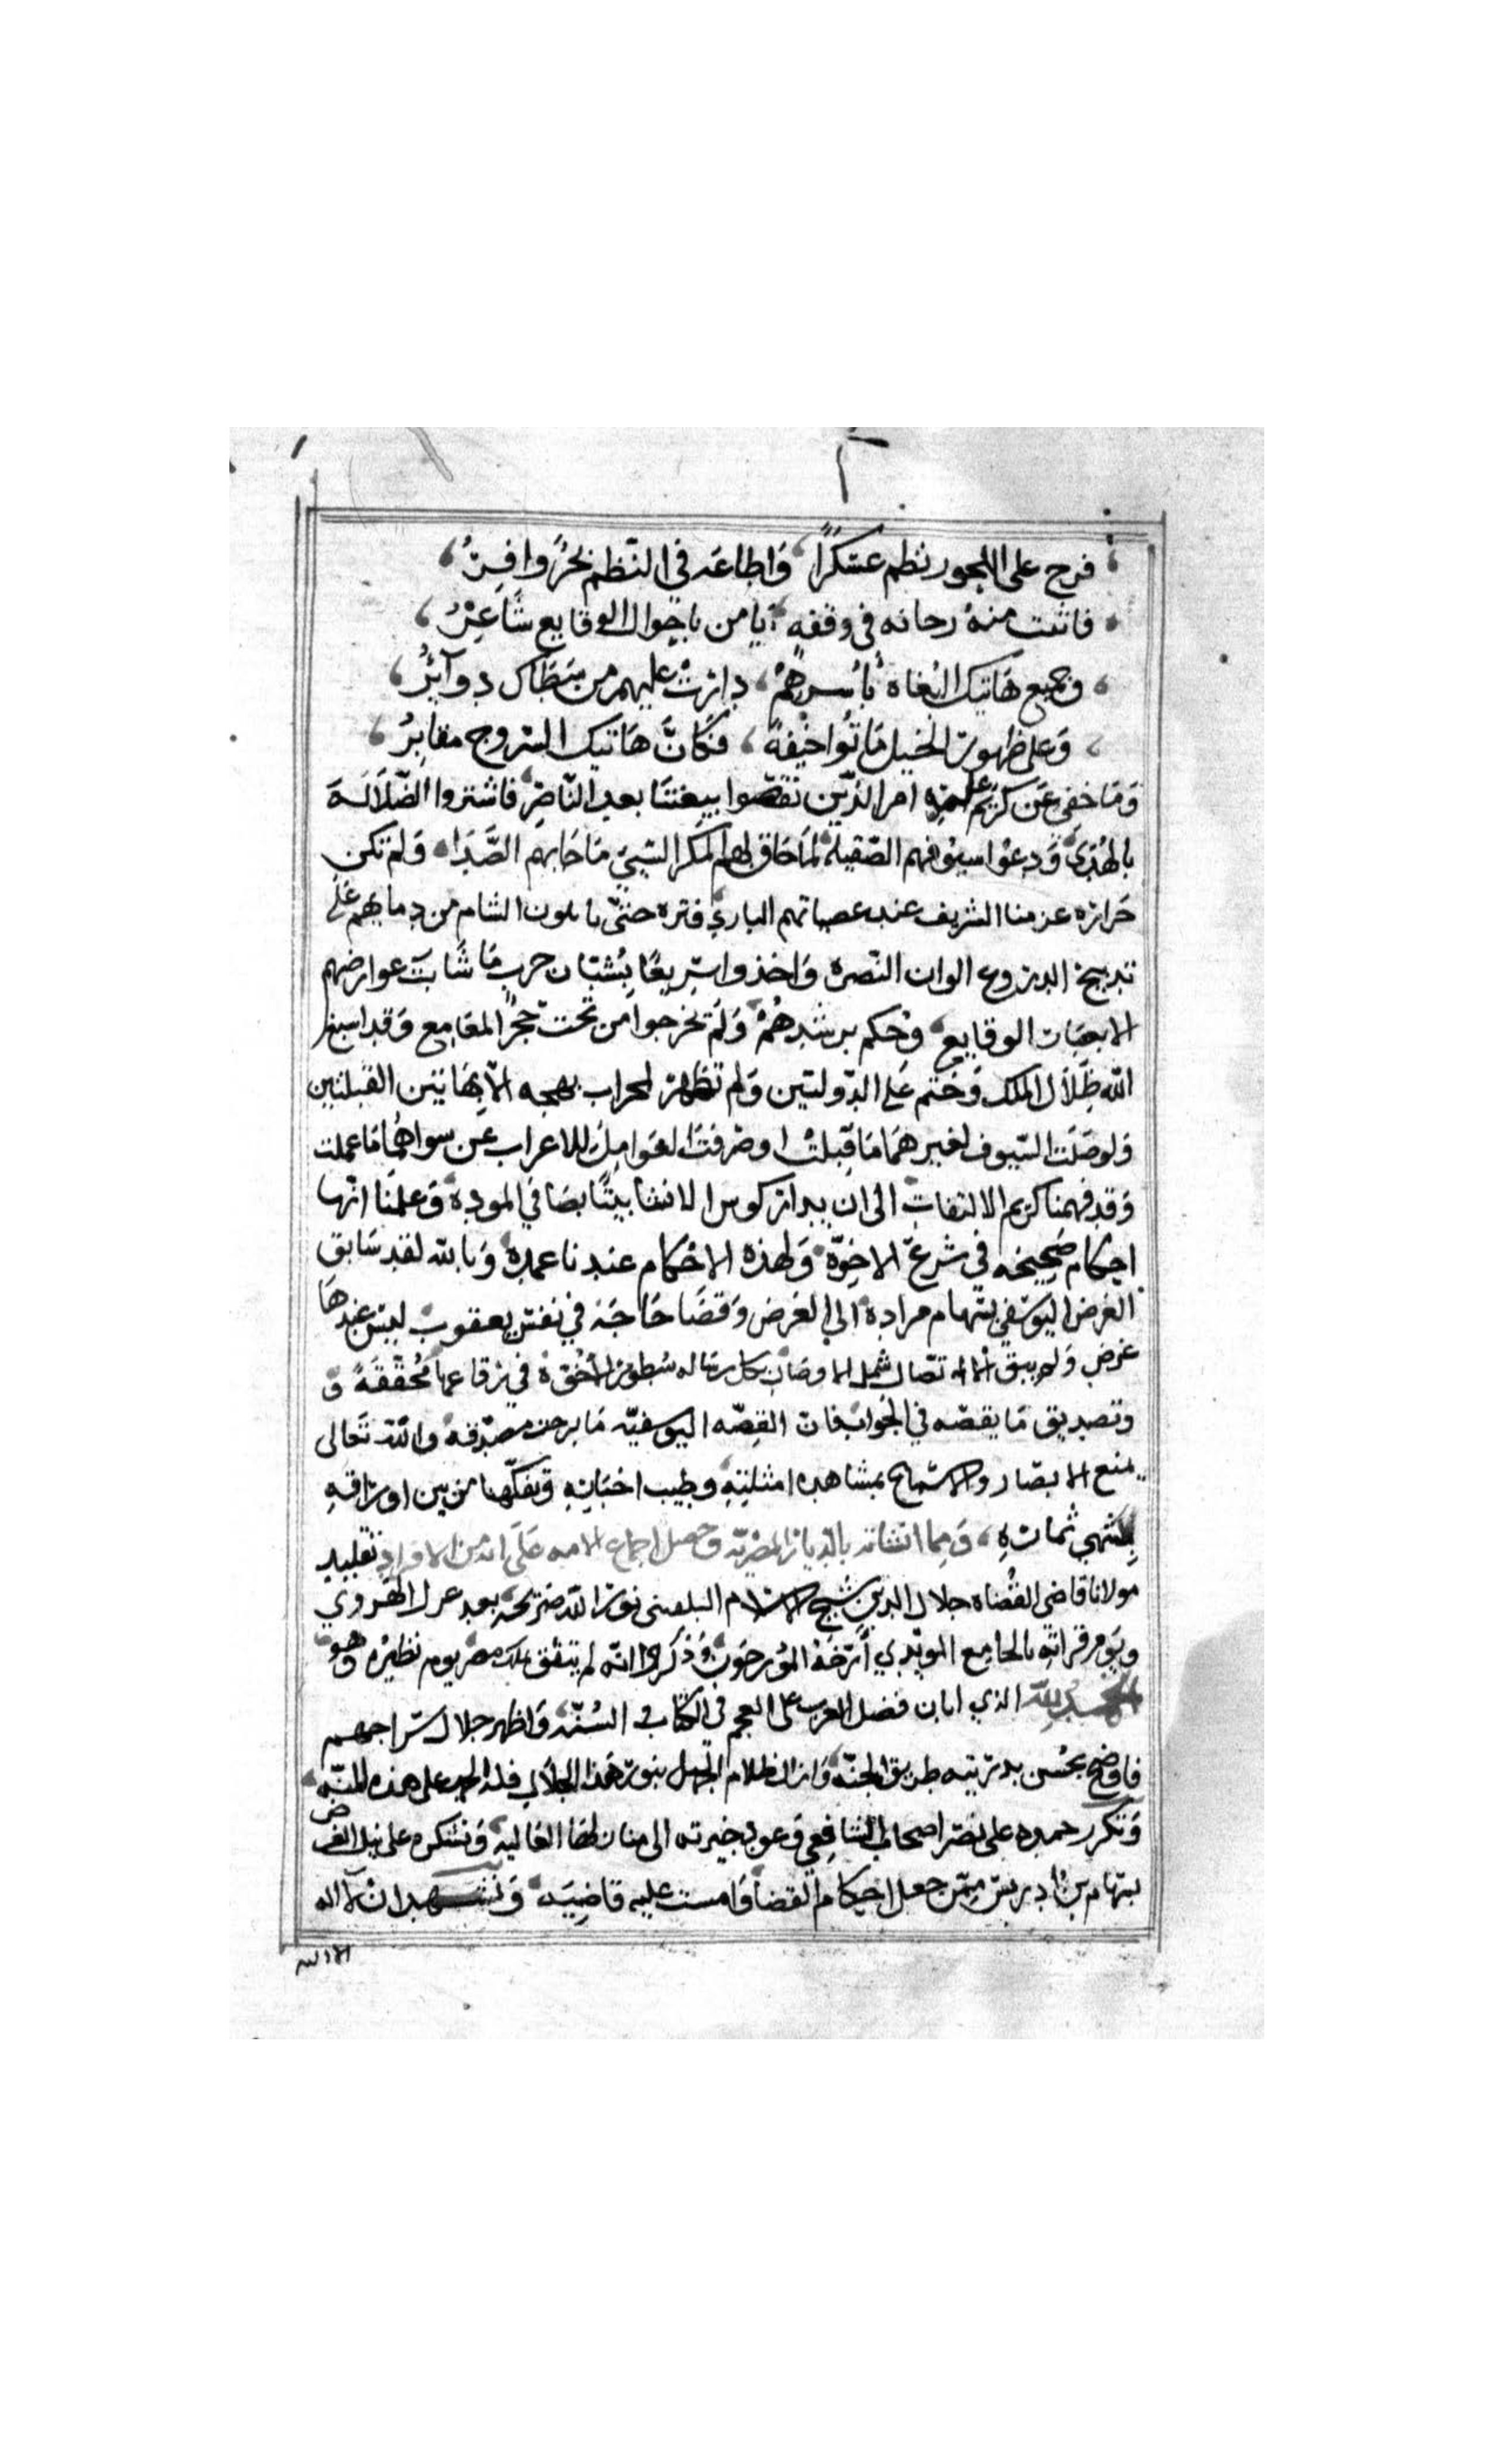 فرج على اللجور نظم عسكرًا وَاطاعَه في النّظم بَحْرٌ وافِرُ
فانثت منهُ زحافه في وقفه يا من باحوال الوقايع شَاعِرُ
وجميع هَاتيك البُغاه بأسرهمْ دارتْ عليهم من سَطَاك دوآئرُ
وَعلى ظهور الخيل مَاتُوا خيفةً فكانَّ هَاتيك السّروج مقابِرُ
وَمَا خفي عَن كريم علمه امر الذّين نقضوا بيعتنَا بعد النّاصر فاشتروا الضّلَالَةَ
بالهُدَى وَدعوْا سيوفهم الصّقيلة لمّا حَاق بهم المكر السّيئ مَا حَابهم الصَّدَا وَلم تكن
حَرارة عزمنا الشريف عند عصيانهم البارد فتره حتّى يا بلون الشام من دمايهم عَلى
تدبيج الدروع الوان النّصرة وَاخذوا سَرِيعًا بشبّان حرب مَا شَابَت عوارضهم
الا بغبَار الوقايع وَحُكم برشدهُمْ وَلَم يخرجوا من تحت حَجْر المعامع وَقد اسبغ
الله ظِلَال الملك وَختم عَلى الدّولتين وَلم تظهر لمحراب بهجه الّا بهَاتين القبلتين
وَلو صَلت السّيوف لغيرهمَا مَا قُبلتْ او صرفتَ العَوامِل للاعراب عَن سواهُمَا مَا عملت
وَقد فهمنا كريم الالتفات الى ان يدار كوس الانشا بيننَا بصَافي المودة وَعلمنَا انها
احكام صَحيحَه في شرع الاخوّة وَلهذه الاحكام عندنا عمدة وَبالله لقد سَابق
الغرض اليوسفي بسهام مراده الى الغَرض وَقضَا حَاجَة في نفس يعقوب ليسَ عندهَا
عَرض وَلم يبق الّا اتصَال شمل الاوصَاف بكل رسَاله سُطور الاخوّة في رقاعها مُحَقَّقَةً وَ
وتصديق مَا يقصّه في الجوَاب فان القِصّه اليوسفيّه مَا برحت مصَدّقةً وَاللهُ تعَالى
يمنع الابصَار والاسْمَاع بمشَاهده امثلتِهِ وَطيب اخبَارِهِ وَيفكّهنا من بين اورَاقهِ
بشهي ثمارِهِ وَمما انشاته بالدّيار المصْريّه وَحصل اجماع الامه عَلَى انه من الافراد تقليد
مولانا قاضي القُضاه جلال الدين شيخ الاسْلام البلقيني نوّر الله ضريحه بعد عزل الهروي
وَيوم قراتهِ بالجامع المويّدي أرّخهُ المؤرخونَ وَذكروا انّه لم يتفق بملك مصر يوم نظيرُه وَهو
الحمْدُ لله الذي ابان فضل العرب على العجم في الكتاب وَالسُنّة وَاظهر جلال سراجهم
فاوضح بحُسن بدريته طريق الجنّه وَازال ظلام الجهل بنور هَذا الجلال فله الحمد على هذه المنّه
وَنكرر حمده على نصر اصحاب الشافِعي وَعود خيرته الى منازلهَا العَاليه وَنشكره على نيل الغرض
بسهام بن ادريس ممّن جعل احكام القضا وَامست عليه قاضِيَه وَنشهد ان لا اله
الا الله